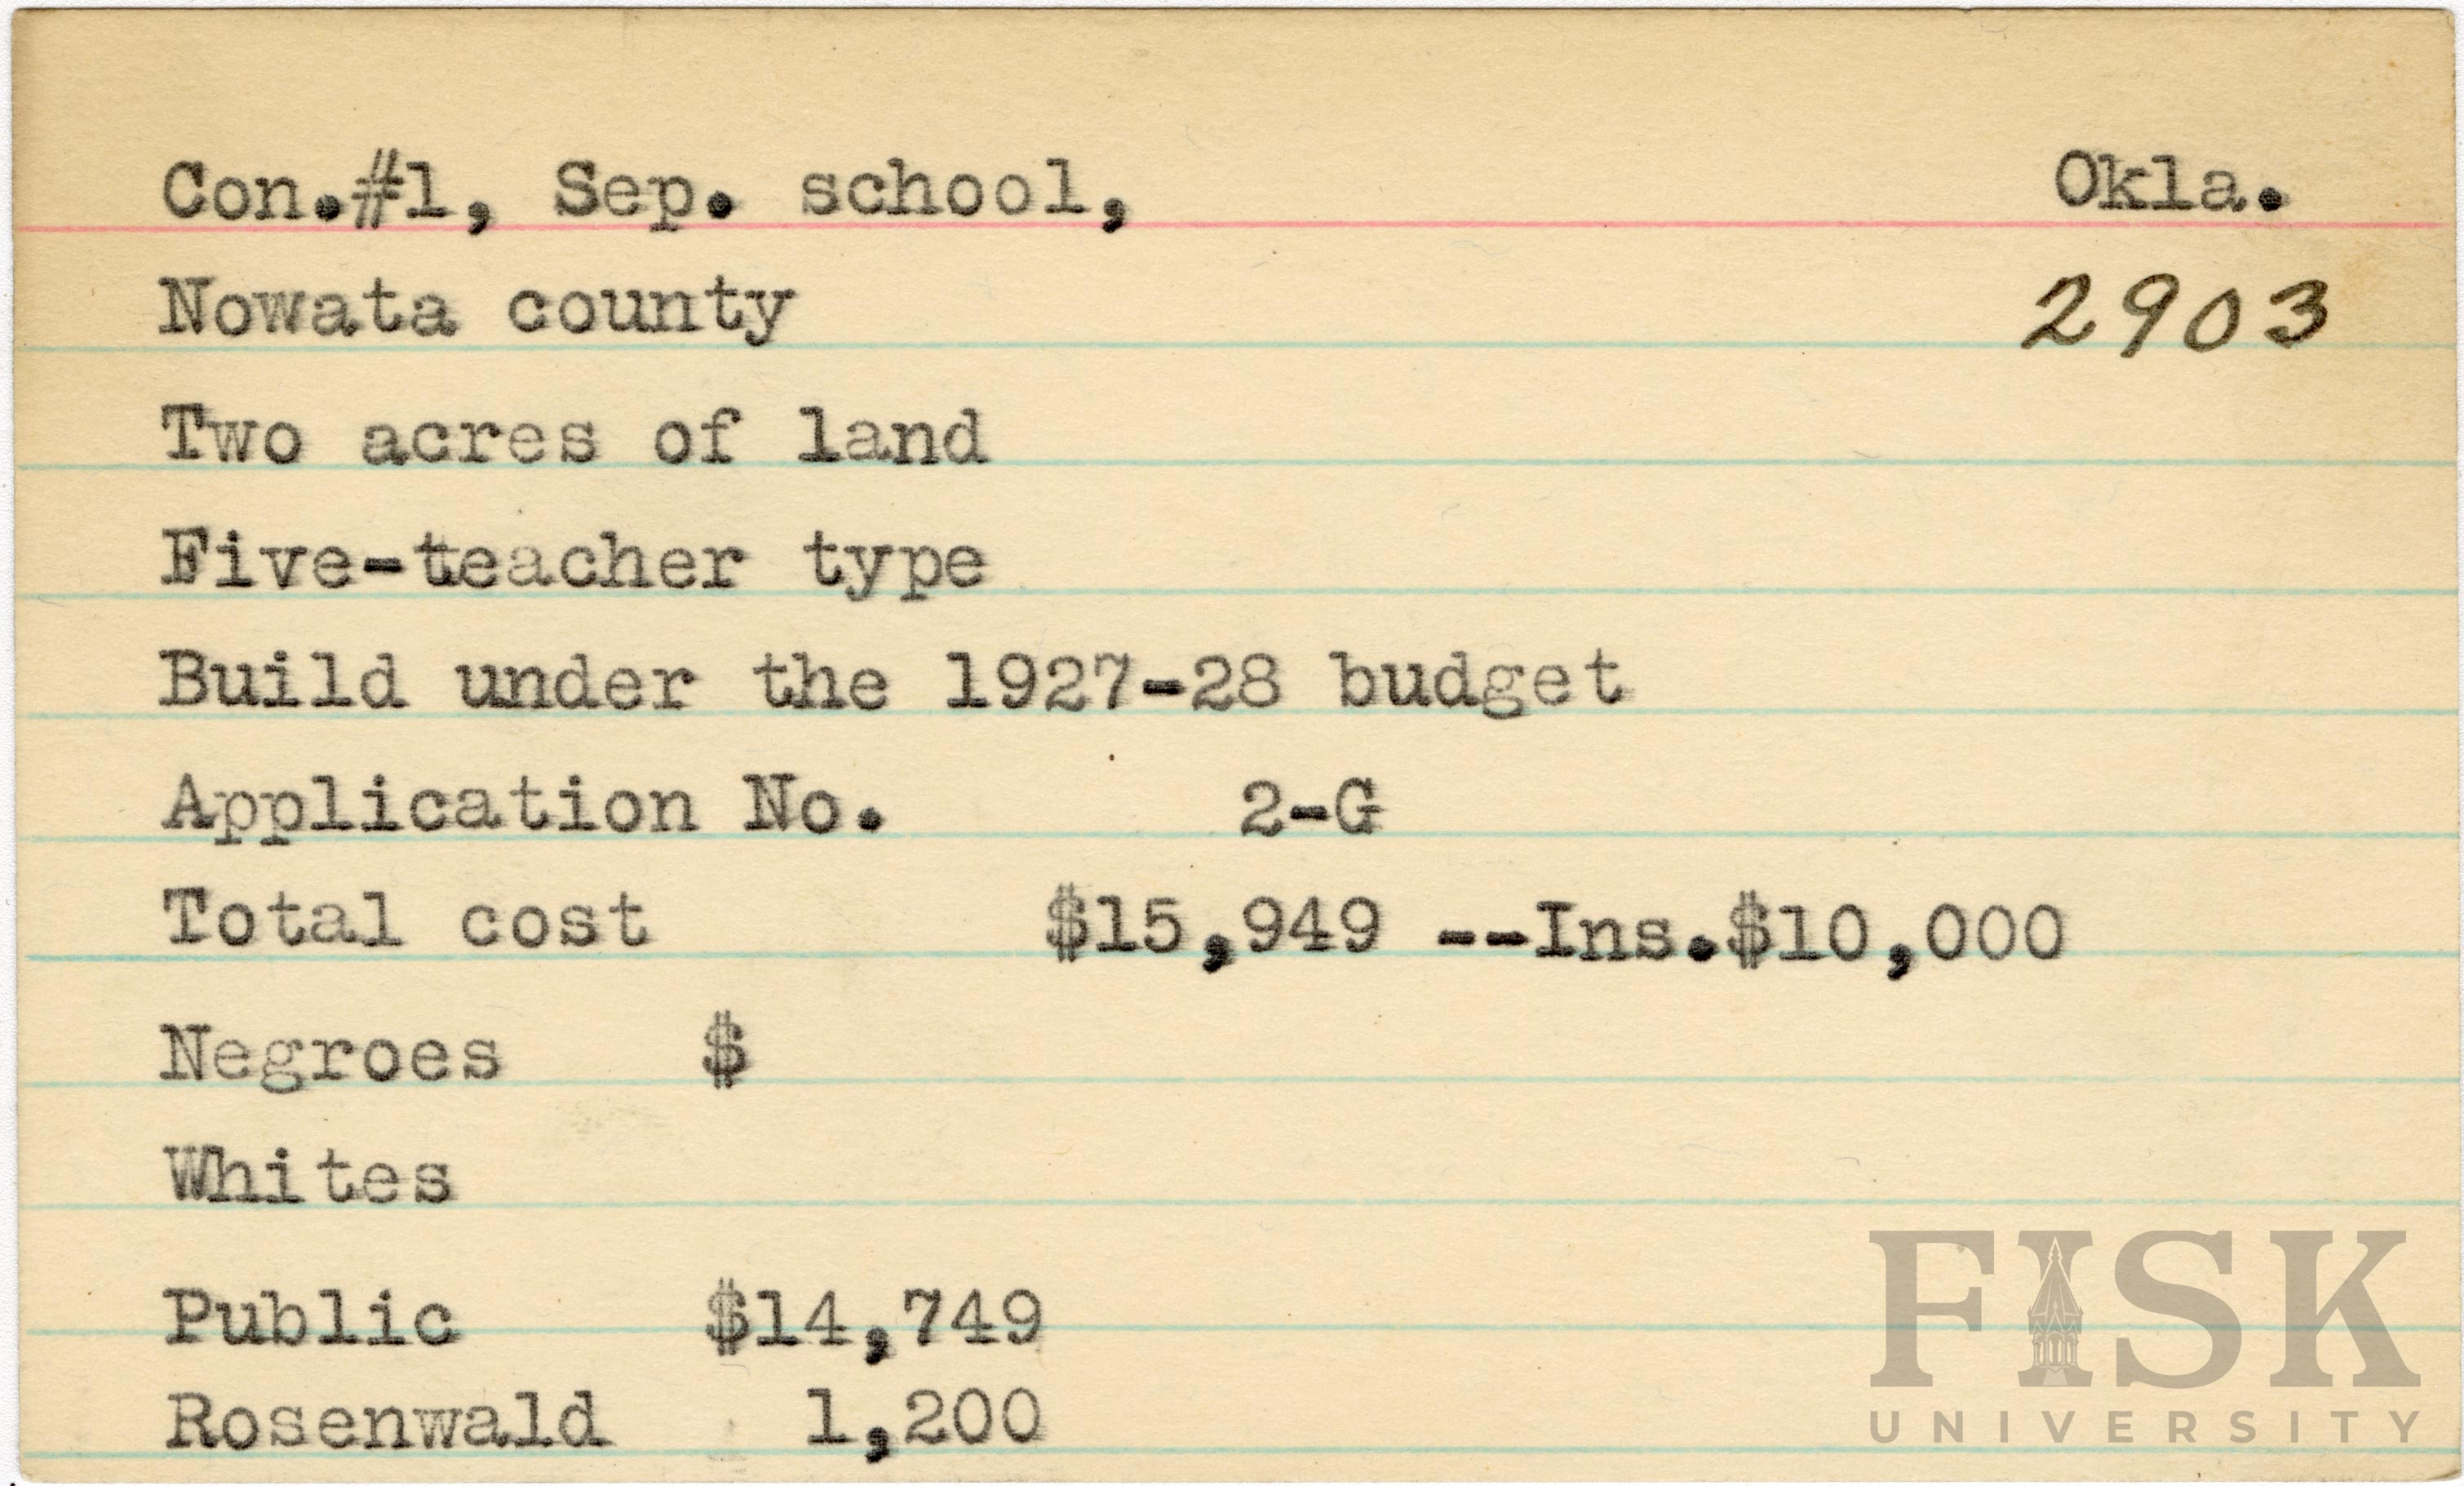 Con.#1, Sep. school, Okla.
Nowata county 2903
Two acres of land
Five-teacher type
Build under the 1927-28 budget
Application No. 2-G
Total cost $15,949 --Ins.$10,000
Negroes $
Whites
Public $14,749
Rosenwald 1,200
FISK
UNIVERSITY